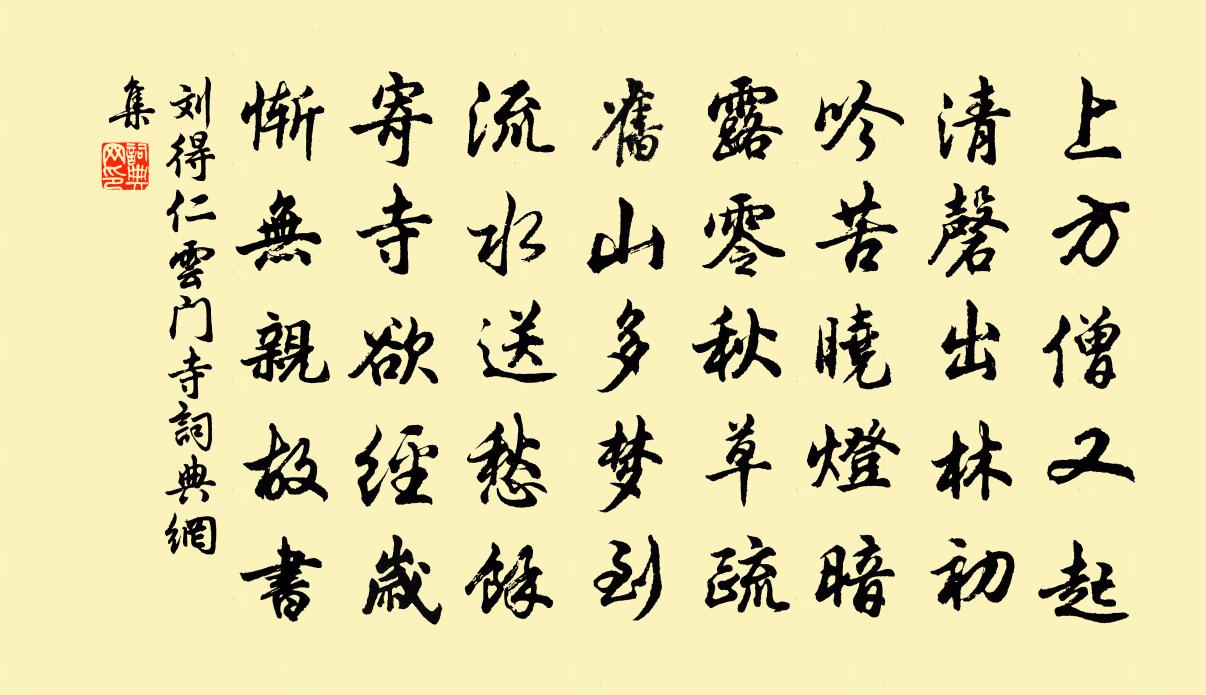 上方僧又起
清磬出林初
吟苦曉燈暗
露零秋草疏
舊山多梦到
流水送愁餘
寄寺欲經歲
慚無親故書
刘得仁雲门寺詞典網
集
詞典網印